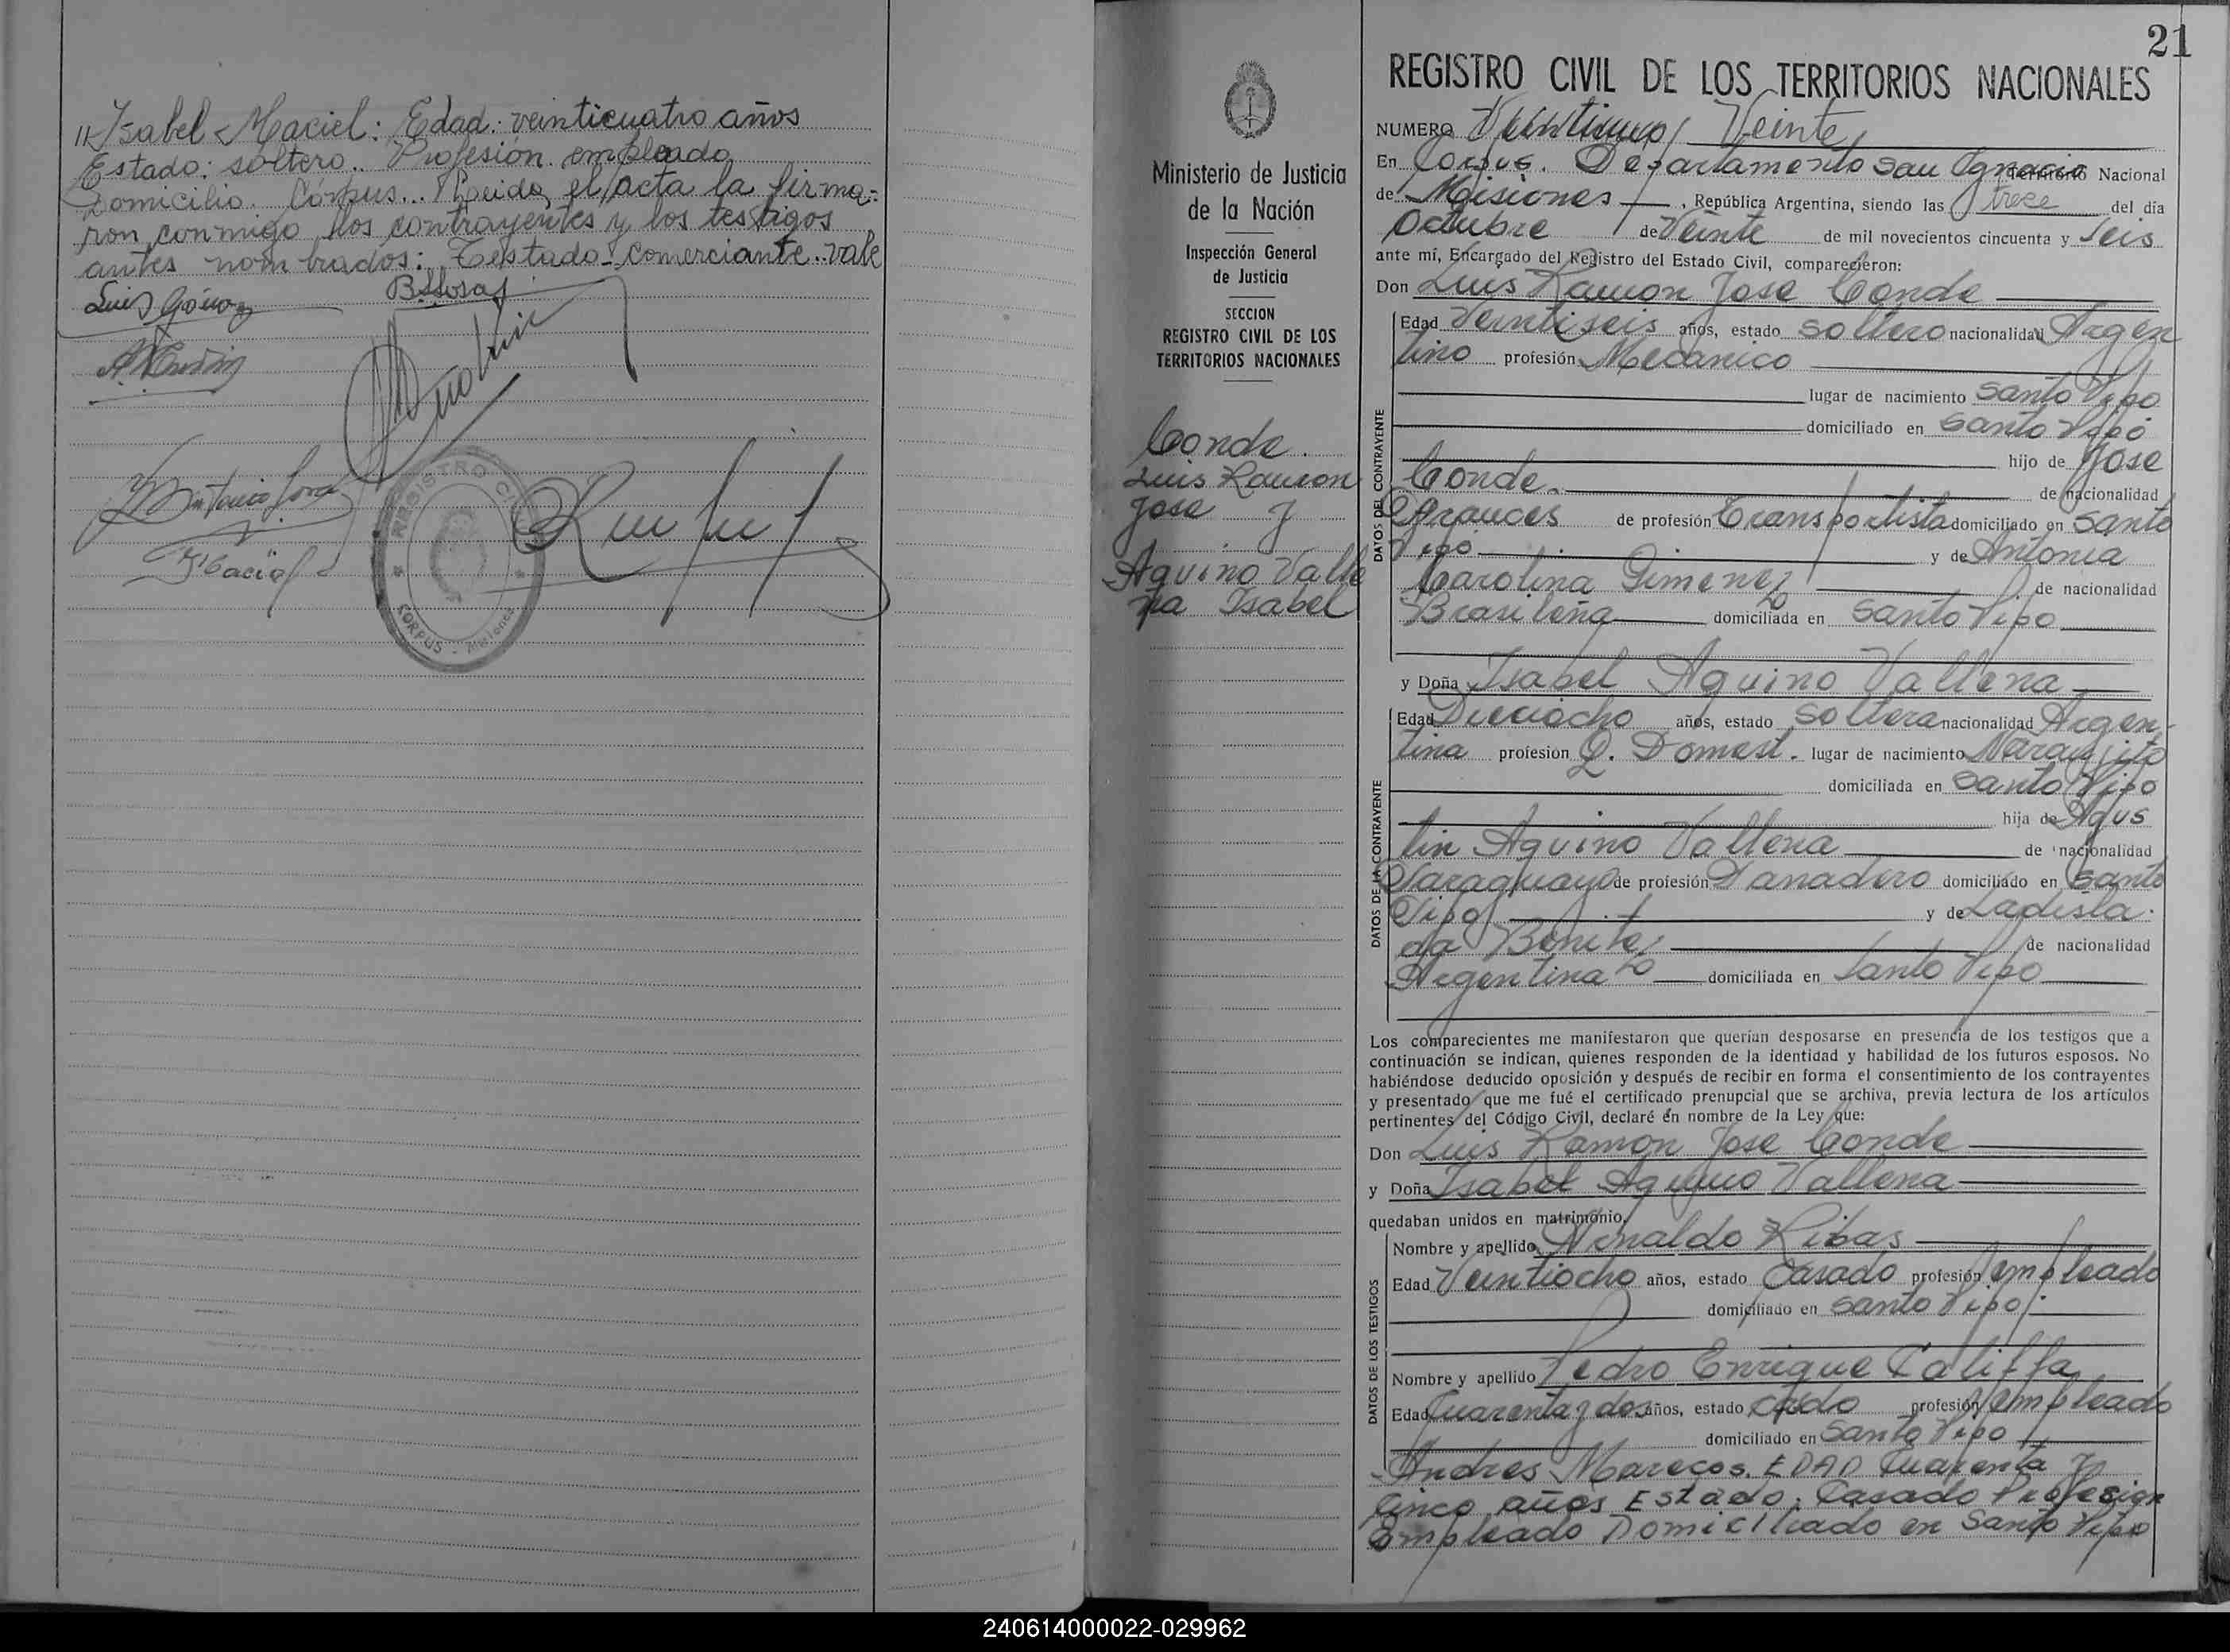 Isabel Maciel: Edad: veinticuatro años
Estado: soltero.. Profesión. empleado
Domicilio. Corpus... Leida el acta la firma=
ron conmigo los contrayentes y los testigos
antes nombrados: Testado- comerciante.. vale
REGISTRO
CORPUS - Misiones
21
Ministerio de Justicia
de la Nación
Inspección General
de Justicia
SECCION
REGISTRO CIVIL DE LOS
TERRITORIOS NACIONALES
Conde.
Luis Ramon
Jose y
Aquino Valle
na Isabel
REGISTRO CIVIL DE LOS TERRITORIOS NACIONALES
NUMERO Veinte
En Corpus. Departamento San Ignacio Nacional
de Misiones, República Argentina, siendo las trece del día
Octubre de Veinte de mil novecientos cincuenta y Seis
ante mí, Encargado del Registro del Estado Civil, comparecieron:
Don Luis Ramon Jose Conde
DATOS DEL CONTRAYENTE
Edad Veintiseis años, estado soltero nacionalidad Argen
tino profesión Mecanico
lugar de nacimiento Santo Pipo
domiciliado en Santo Pipó
hijo de Jose
Conde. de nacionalidad
Frances de profesión Transportista domiciliado en Santo
Pipo y de Antonia
Carolina Gimenez de nacionalidad
Brasileña domiciliada en Santo Pipo
y Doña Isabel Aquino Vallena
DATOS DE LA CONTRAYENTE
Edad Dieciocho años, estado Soltera nacionalidad Argen-
tina profesion Q. Domest. lugar de nacimiento Naranjito
domiciliada en Santo Pipo
hija de Agus
tin Aquino Vallena de nacionalidad
Paraguayo de profesión Panadero domiciliado en Santo
Pipo y de Ladisla
da Benitez de nacionalidad
Argentina domiciliada en Santo Pipo
Los comparecientes me manifestaron que querían desposarse en presencia de los testigos que a
continuación se indican, quienes responden de la identidad y habilidad de los futuros esposos. No
habiéndose deducido oposición y después de recibir en forma el consentimiento de los contrayentes
y presentado que me fué el certificado prenupcial que se archiva, previa lectura de los artículos
pertinentes del Código Civil, declaré en nombre de la Ley que:
Don Luis Ramon Jose Conde
y Doña Isabel Aquino Vallena
quedaban unidos en matrimonio.
DATOS DE LOS TESTIGOS
Nombre y apellido Ribas
Edad Veintiocho años, estado Casado profesión empleado
domiciliado en Santo Pipo.
Nombre y apellido Pedro Enrique Califfa
Edad Cuarenta y dos años, estado profesión empleado
domiciliado en Santo Pipo
Andres Marecos. EDAD Cuarenta y
Cinco años Estado: Casado Profesion
Empleado Domiciliado en Santo Pipo
240614000022-029962